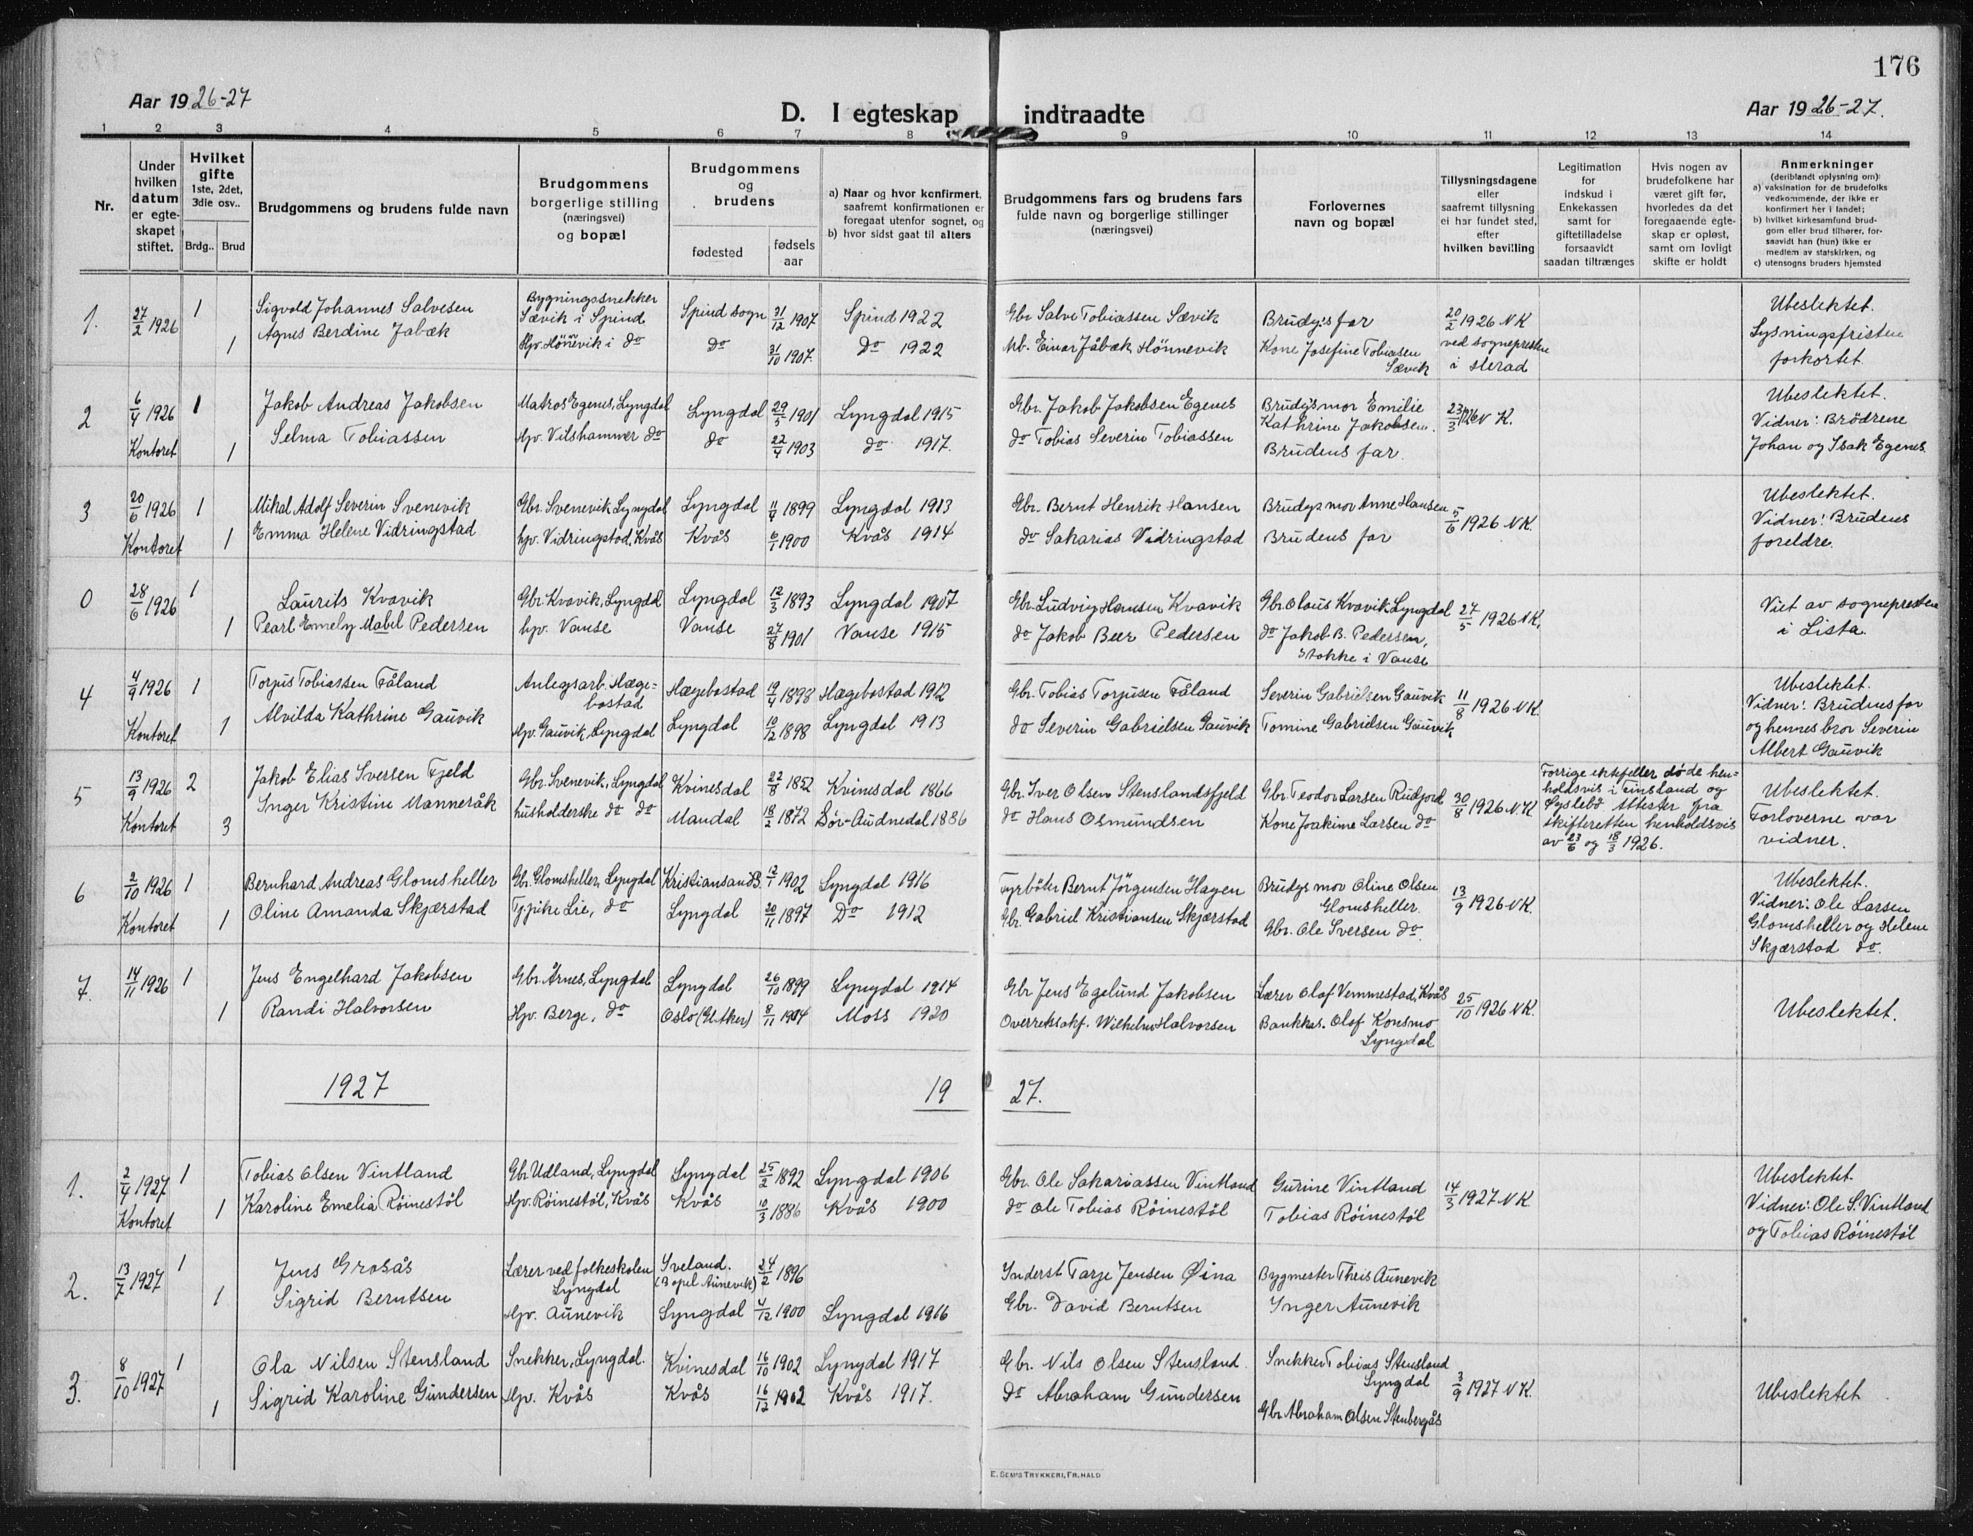 176
Aar 1926-27
D. I egteskap indtraadte
Aar 1926-27.
1 2 3 4 5 6 7 8 9 10 11 12 13 14
Nr.
Under hvilken datum er egteskapet stiftet.
Hvilket gifte
1ste, 2det, 3die osv..
Brdg.. Brud
Brudgommens og brudens fulde navn
Brudgommens borgerlige stilling (næringsvei) og bopæl
Brudgommens og brudens
fødested
fødsels aar
a) Naar og hvor konfirmert, saafremt konfirmationen er foregaat utenfor sognet, og
b) hvor sidst gaat til alters
Brudgommens fars og brudens fars fulde navn og borgerlige stillinger (næringsvei)
Forlovernes navn og bopæl
Tillysningsdagene eller saafremt tillysning ei har fundet sted, efter hvilken bavilling
Legitimation for indskud i Enkekassen samt for giftetilladelse forsaavidt saadan tiltrænges
Hvis nogen av brudefolkene har været gift før, hvorledes da det foregaaende egteskap er opløst, samt om lovligt skifte er holdt
Anmerkninger
(deriblandt oplysning om):
a) vaksination for de brudefolks vedkommende, der ikke er konfirmert her i landet;
b) hvilket kirkesamfund brudgom eller brud tilhører, forsaavidt han (hun) ikke er medlem av statskirken, og
c) utensogns bruders hjemsted
1. 27/2 1926 1 Sigvald Johannes Salvesen Bygningssnekker Sævik i Spind Spind sogn 21/12 1907 Spind 1922 Gbr Salve Tobiassen Sævik Brudg's far 20/2 1926 NK Ubeslektet
1 Agnes Berdine Jabæk Hjv. Hønnevik i do do 31/10 1907. Do 1922 Mb. Einar Jåbæk, Hönnevik Kone Josefine Tobiasen Sævik ved sognepresten i Herad Lysningsfristen forkortet.
2 6/4 1926 1 Jakob Andreas Jakobsen Matros Egenes, Lyngdal Lyngdal 29/5 1901 Lyngdal 1915 Gbr. Jakob Jakobsen Egenes Brudg's mor Emilie Kathrine Jakobsen. 23/3 1926 N K. Ubeslektet.
Kontoret 1 Selma Tobiassen Hjv. Vilshammer do do 22/4 1903 do 1917. do Tobias Severin Tobiassen Brudens far. Vidner: Brödrene Johan og Isak Egenes.
3 20/6 1926 1 Mikal Adolf Severin Svenevik Gbr. Svenevik, Lyngdal Lyngdal 11/9 1899 Lyngdal 1913 Gbr. Bernt Henrik Hansen Brudgs mor Anne Hansen 5/6 1926 NK. Ubeslektet.
Kontoret 1 Emma Helene Vidringstad hjv. Vidringstad, Kvås Kvås 6/1 1900 Kvås 1914 do Sakarias Vidringstad Brudens far Vidner: Brudens foreldre.
0 28/6 1926 1 Laurits Kvavik Gbr Kvavik, Lyngdal Lyngdal 12/3 1893 Lyngdal 1907 Gbr. Ludvig Hansen Kvavik Gbr Olaus Kvavik, Lyngdal 27/5 1926 NK. Viet av sognepresten
1 Pearl Emely Mabel Pedersen hjv. Vanse Vanse 27/8 1901 Vanse 1915 do Jakob Beer Pedersen do Jakob B. Pedersen, Stokke i Vanse i Lista
4 4/9 1926 1 Torjus Tobiassen Fåland Anlegsarb. Hægebostad Hægebostad 19/4 1898 Hægebostad 1912 Gbr. Tobias Torjusen Fåland Severin Gabrielsen Gauvik 11/8 1926 NK. Ubeslektet.
Kontoret 1 Alvilda Kathrine Gauvik Hjv. Gauvik, Lyngdal Lyngdal 10/12 1898 Lyngdal 1913 do Severin Gabrielsen Gauvik Tomine Gabrielsen Gauvik Vidner: Brudens far og hennes bror Severin Albert Gauvik
5 13/9 1926 2 Jakob Elias Iversen Fjeld Gbr. Svenevik, Lyngdal Kvinesdal 22/8 1852 Kvinesdal 1866 Gbr. Iver Olsen Stenslandsfjeld Gbr Teodor Larsen Rudjord 30/8 1926 N.K Forrige ektefeller døde henholdsvis i Finsland og Øyslebö Attester fra skifteretten henholdsvis av 23/6 og 18/3 1926. Ubeslektet.
Kontoret 3 Inger Kristine Manneråk husholderske do do Mandal 18/2 1872 Sör-Audnedal 1886 do Hans Osmundsen Kone Joakime Larsen do Forloverne var vidner.
6 2/10 1926 1 Bernhard Andreas Glomsheller Gbr. Glomsheller, Lyngdal Kristiansand S. 12/1 1902 Lyngdal 1916 Fyrböter Bernt Jörgensen Hagen Brudgs mor Oline Olsen Glomsheller. 13/9 1926 NK. Ubeslektet.
Kontoret 1 Oline Amanda Skjærstad Tj.pike Lie, do Lyngdal 20/11 1897 Do 1912 Gbr. Gabriel Kristiansen Skjærstad Gbr. Ole Iversen do. Vidner: Ole Larsen Glomsheller og Helene Skjærstad do.
7. 14/11 1926 1 Jens Engelhard Jakobsen Gbr. Årnes, Lyngdal Lyngdal 26/10 1899 Lyngdal 1914 Gbr Jens Egelund Jakobsen Lærer Olaf Vemmestad, Kvås 25/10 1926 NK. Ubeslektet.
1 Randi Halvorsen Hjv. Berge, do Oslo (Gl. Aker) 8/11 1904 Moss 1920 Overretssakf. Wilhelm Halvorsen Bankkas. Olaf Konsmo Lyngdal
1927 19 27.
1. 2/4 1927 1 Tobias Olsen Vintland Gbr. Udland, Lyngdal Lyngdal 25/2 1892 Lyngdal 1906 Gbr. Ole Sakariassen Vintland Gurine Vintland 14/3 1927 NK Ubeslektet.
Kontoret 1 Karoline Emelia Röinestöl Hjv. Röinestöl, Kvås Kvås 10/3 1886 Kvås 1900 do Ole Tobias Röinestöl Tobias Röinestöl Vidner: Ole S. Vintland og Tobias Röinestöl
2. 13/7 1927 1 Jens Grosås Lærer ved folkeskolen Lyngdal Iveland. (Bopel Aunevik) 24/2 1896 Inderst Tarje Jensen Øina Bygmester Theis Aunevik
1 Sigrid Berntsen Hjv. Aunevik Lyngdal 4/12 1900 Lyngdal 1916 Gbr. David Berntsen Inger Aunevik
3. 8/10 1927 1 Ola Nilsen Stensland Snekker, Lyngdal. Kvinesdal 16/10 1902 Lyngdal 1917 Gbr. Nils Olsen Stensland. Snekker Tobias Stensland Lyngdal 3/9 1927 NK. Ubeslektet
1 Sigrid Karoline Gundersen Hjv. Kvås Kvås 16/12 1902 Kvås 1917. do Abraham Gundersen Gbr Abraham Olsen Stenbergås
E. SEM'S TRYKKERI, FR.HALD